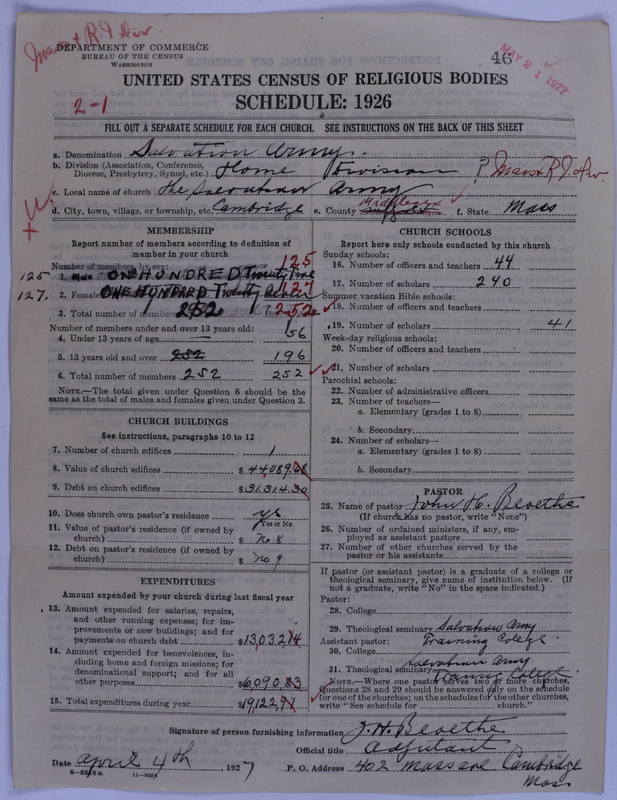 Mass + R.I. Div.
DEPARTMENT OF COMMERCE
BUREAU OF THE CENSUS
WASHINGTON
46
MAY 21 1927
UNITED STATES CENSUS OF RELIGIOUS BODIES
2-1
SCHEDULE: 1926
FILL OUT A SEPARATE SCHEDULE FOR EACH CHURCH. SEE INSTRUCTIONS ON THE BACK OF THIS SHEET
a. Denomination Salvation Army.
b. Division (Association, Conference, Diocese, Presbytery, Synod, etc.) Home Division ? Mass + R.I. Div
c. Local name of church The Salvation Army
d. City, town, village, or township, etc. Cambridge e. County Middlesex Suffolk f. State Mass
MEMBERSHIP
Report number of members according to definition of
member in your church
Number of members by sex:
125 1. Male ONE HUNDRED Twenty Five 125
127. 2. Female ONE HUNDRED Twenty Seven 127
3. Total number of members 252 252
Number of members under and over 13 years old:
4. Under 13 years of age 56
5. 13 years old and over 252 196
6. Total number of members 252 252
NOTE.—The total given under Question 6 should be
same as the total of males and females given under Question 3.
CHURCH BUILDINGS
See instructions, paragraphs 10 to 12
7. Number of church edifices 1
8. Value of church edifices $44,089.
9. Debt on church edifices $31,314.30
10. Does church own pastor's residence yes
Yes or No
11. Value of pastor's residence (if owned by
church) $ No 8
12. Debt on pastor's residence (if owned by
church) $ No 9
EXPENDITURES
Amount expended by your church during last fiscal year
13. Amount expended for salaries, repairs,
and other running expenses; for im-
provements or new buildings; and for
payments on church debt $13,032.14
14. Amount expended for benevolences, in-
cluding home and foreign missions; for
denominational support; and for all
other purposes $6,090.83
15. Total expenditures during year $19,122.97
CHURCH SCHOOLS
Report here only schools conducted by this church
Sunday schools:
16. Number of officers and teachers 44
17. Number of scholars 240
Summer vacation Bible schools:
18. Number of officers and teachers
19. Number of scholars 41
Week-day religious schools:
20. Number of officers and teachers
21. Number of scholars
Parochial schools:
22. Number of administrative officers
23. Number of teachers—
a. Elementary (grades 1 to 8)
b. Secondary
24. Number of scholars—
a. Elementary (grades 1 to 8)
b. Secondary
PASTOR
25. Name of pastor John H. Bevethe
(If church has no pastor, write "None")
26. Number of ordained ministers, if any, em-
ployed as assistant pastors
27. Number of other churches served by the
pastor or his assistants
If pastor (or assistant pastor) is a graduate of a college or
theological seminary, give name of institution below. (If
not a graduate, write "No" in the space indicated.)
Pastor:
28. College
29. Theological seminary Salvation Army
Assistant pastor: Training College
30. College
Salvation Army
31. Theological seminary Training College
NOTE.—Where one pastor serves two or more churches,
Questions 28 and 29 should be answered only on the schedule
for one of the churches; on the schedules for the other churches,
write "See schedule for church."
Signature of person furnishing information J. H. Bevethe
Official title Adjutant
Date April 4th, 1927 P. O. Address 402 Mass ave Cambridge
Mass
8—5518a 11—9054